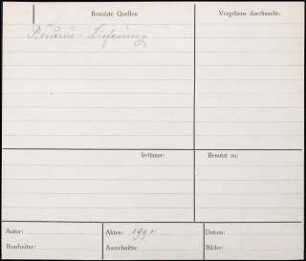 Benutzte Quellen
Vergebens durchsucht:
Irrtümer:
Benutzt zu:
Autor:
Akten:
Datum:
Bearbeiter:
Ausschnitte:
Bilder: